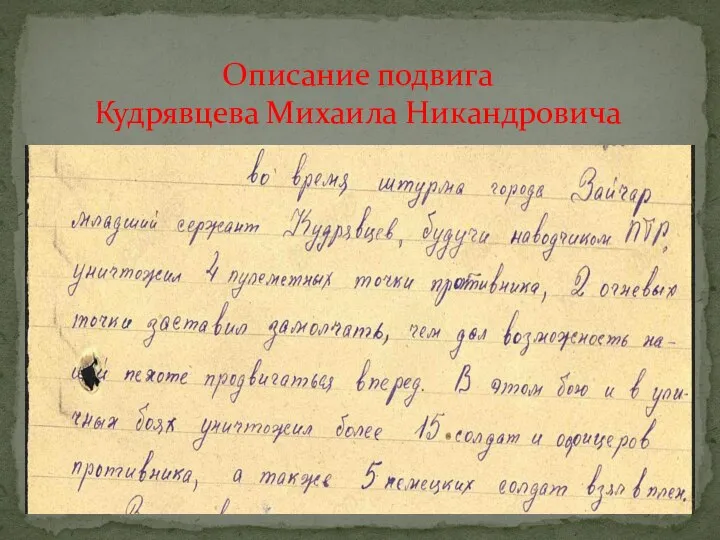 Описание подвига
Кудрявцева Михаила Никандровича
во время штурма города Зайчар
младший сержант Кудрявцев, будучи наводчиком ПТР,
уничтожил 4 пулеметных точки противника, 2 огневых
точки заставил замолчать, чем дал возможность на-
шей пехоте продвигаться вперед. В этом бою и в ули-
чных боях уничтожил более 15 солдат и офицеров
противника, а также 5 немецких солдат взял в плен.